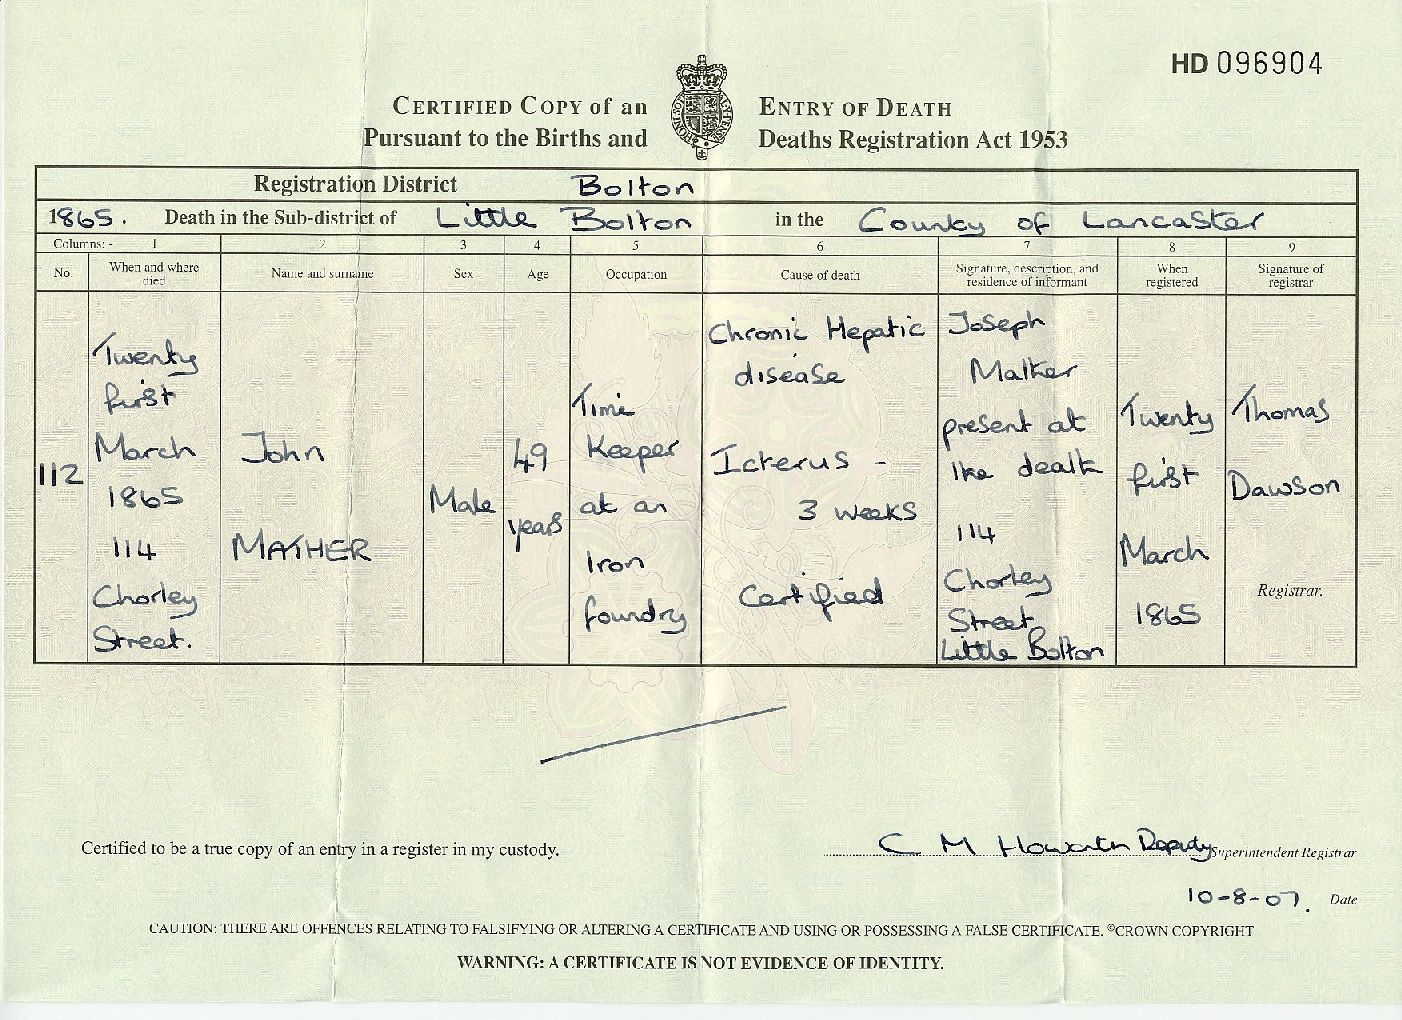 HD 096904
CERTIFIED COPY of an ENTRY OF DEATH
Pursuant to the Births and Deaths Registration Act 1953
Registration District Bolton
1865. Death in the Sub-district of Little Bolton in the County of Lancaster
Columns: - 1 2 3 4 5 6 7 8 9
No.
When and where
died
Name and surname
Sex
Age
Occupation
Cause of death
Signature, description, and
residence of informant
When
registered
Signature of
registrar
112
Twenty
first
March
1865
114
Chorley
Street.
John
MATHER
Male
49
years
Time
Keeper
at an
Iron
foundry
Chronic Hepatic
disease
Icterus -
3 weeks
Certified
Joseph
Mather
present at
the death
114
Chorley
Street
Little Bolton
Twenty
first
March
1865
Thomas
Dawson
Registrar.
Certified to be a true copy of an entry in a register in my custody.
C M Howarth Deputy Superintendent Registrar
10-8-07. Date
CAUTION: THERE ARE OFFENCES RELATING TO FALSIFYING OR ALTERING A CERTIFICATE AND USING OR POSSESSING A FALSE CERTIFICATE. ©CROWN COPYRIGHT
WARNING: A CERTIFICATE IS NOT EVIDENCE OF IDENTITY.